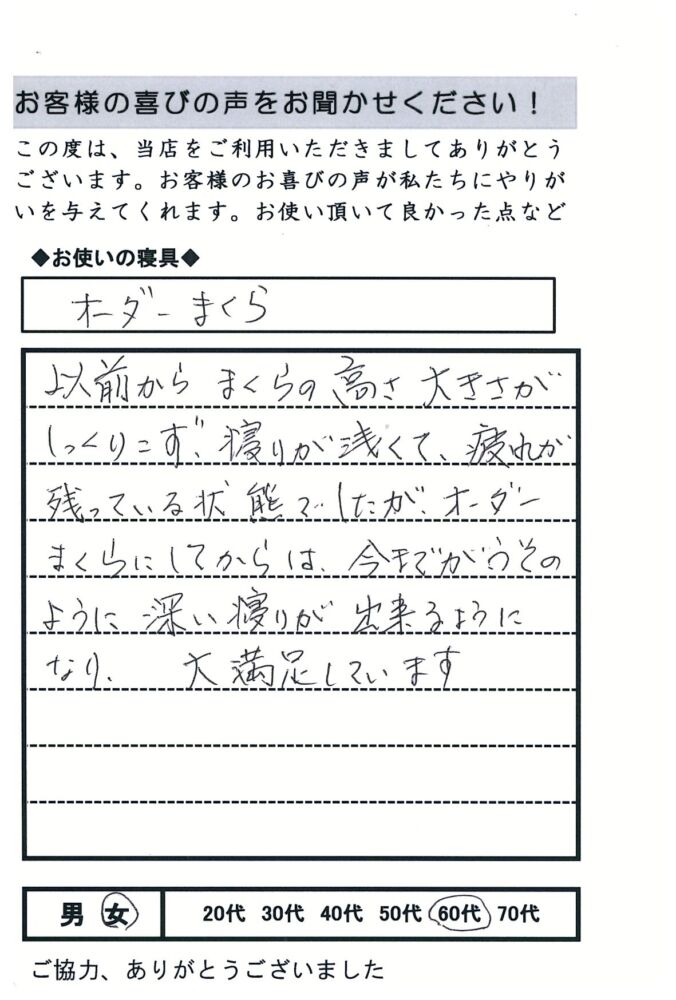 お客様の喜びの声をお聞かせください！
この度は、当店をご利用いただきましてありがとう
ございます。お客様のお喜びの声が私たちにやりが
いを与えてくれます。お使い頂いて良かった点など
◆お使いの寝具◆
オーダーまくら
以前から まくらの高さ 大きさが
しっくりこず、寝りが浅くて、疲れが
残っている状態でしたが、オーダー
まくらにしてからは、今までがうその
ように 深い寝りが 出来るように
なり、 大満足しています
男 女 20代 30代 40代 50代 60代 70代
ご協力、ありがとうございました